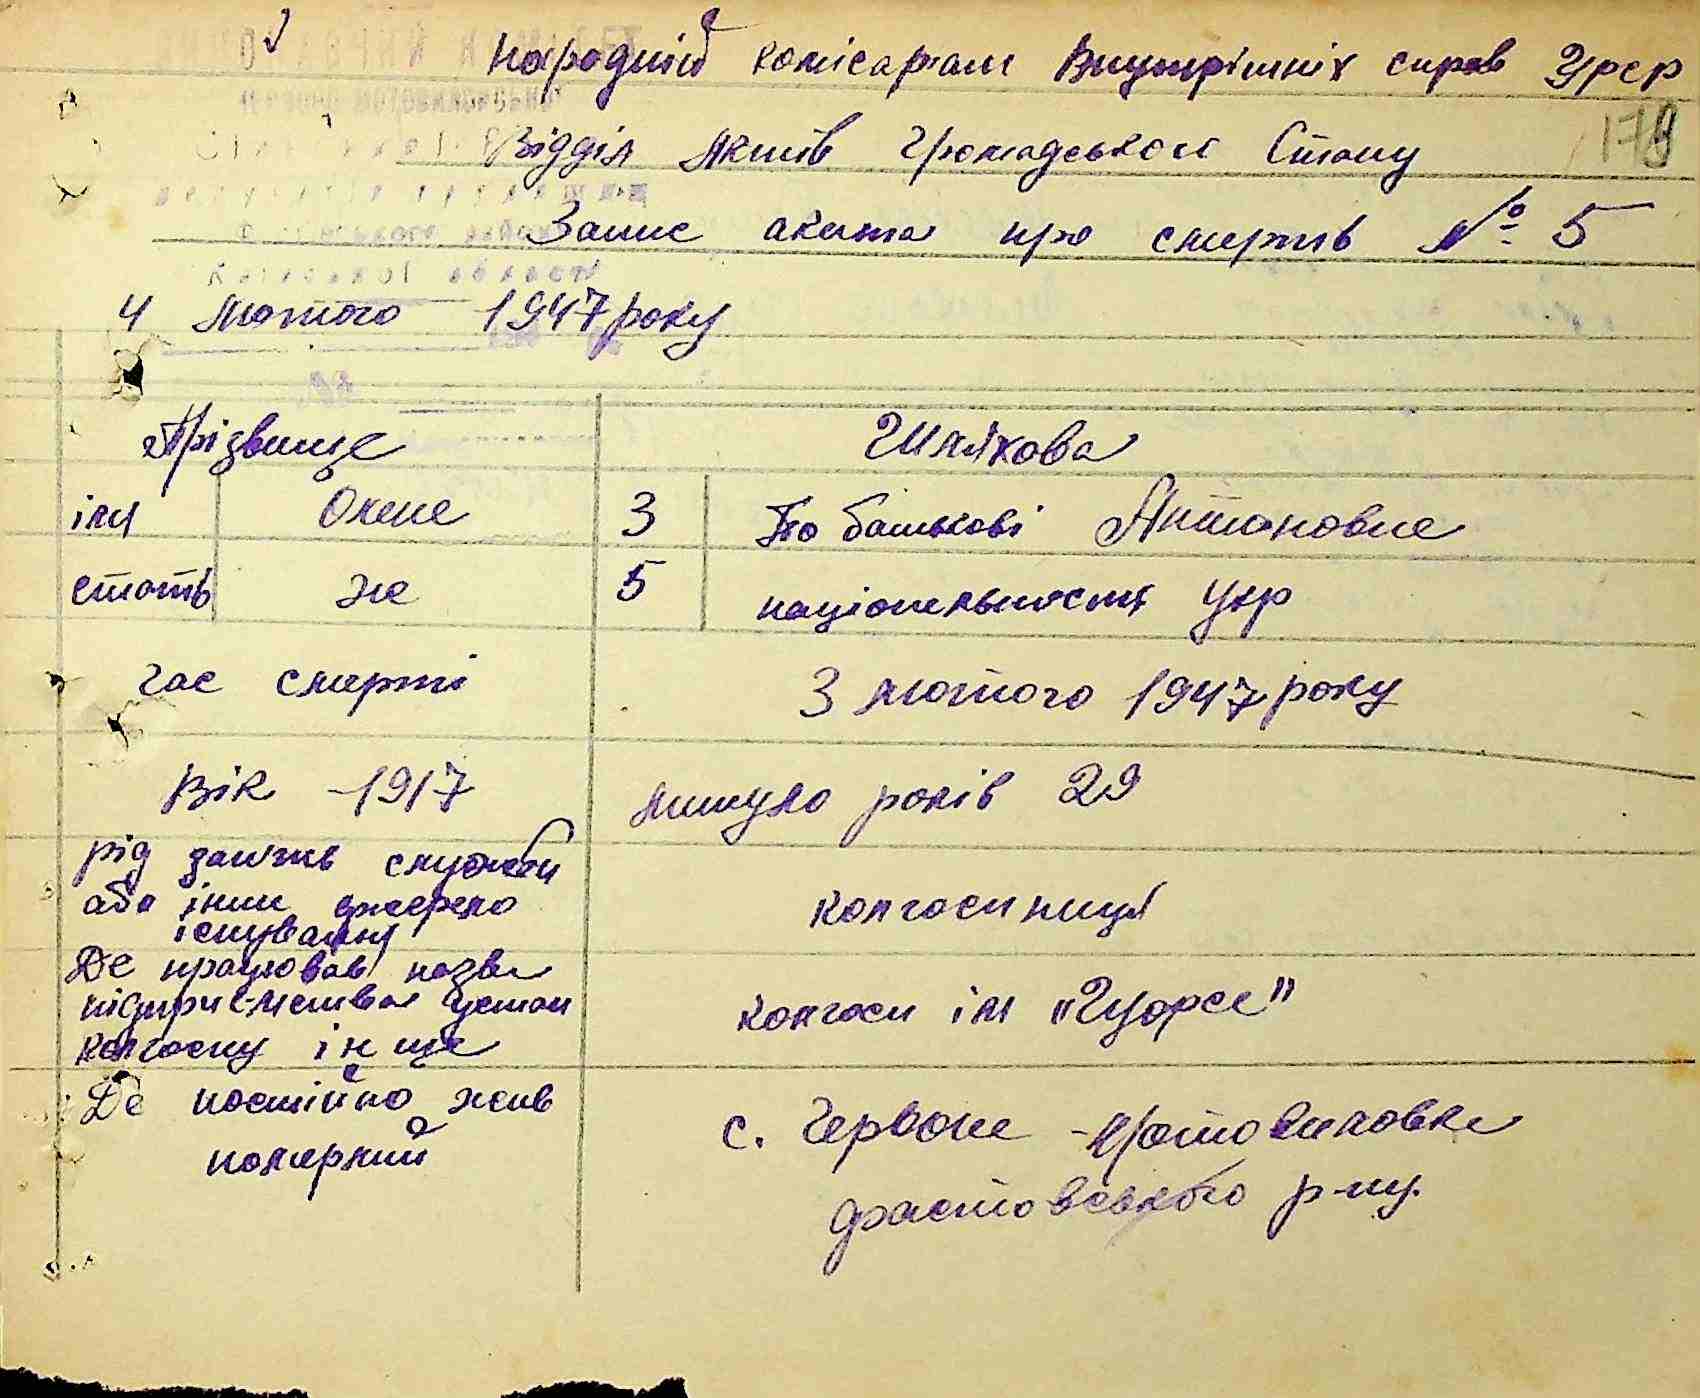 Народній комісаріат Внутрішніх справ Урср
179
Відділ Актів Громадського Стану
Запис акта про смерть № 5
4 лютого 1947 року
Прізвище
імя Олена 3 По батькові Антоновна
стать же 5 національность укр
час смерті 3 лютого 1947 року
Вік - 1917 минуло років 29
рід занять служби
або інше джерело
існування
колгоспниця
Де працював назва
підприємства устан
колгоспу інше
колгосп ім "Щорса"
Де постійно жив
померший
с. Червоне -
фастовського р-ну.